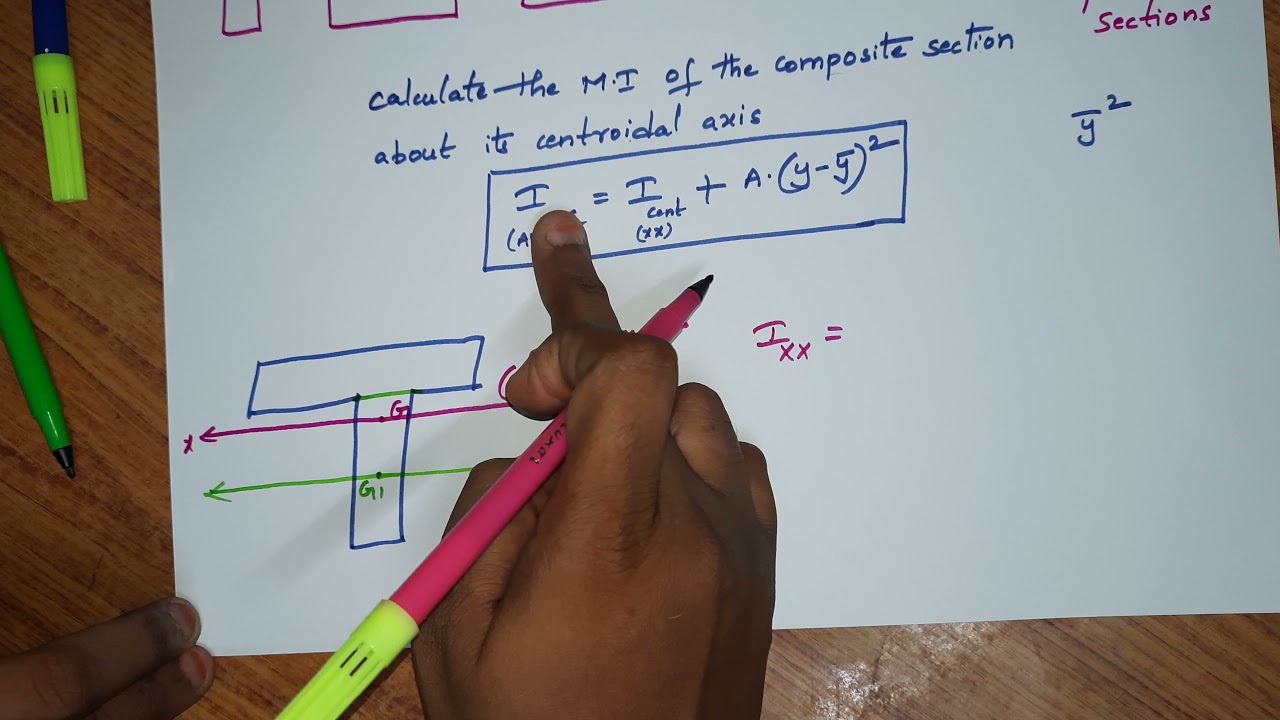 sections
calculate the M.I of the composite section
about its centroidal axis
ȳ²
I = I + A.(y-ȳ)²
cent
(xx)
I_xx =
G
x
G1